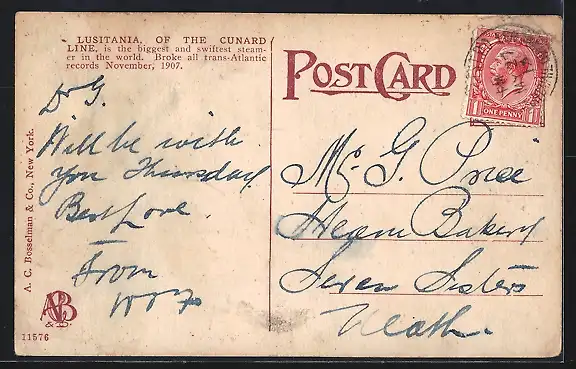 LUSITANIA, OF THE CUNARD
LINE, is the biggest and swiftest steam-
er in the world. Broke all trans-Atlantic
records November, 1907.
POST CARD
ONE PENNY
Dr G.
Will be with
you Thursday
Best Love
From
Mr G. Price
Steam Bakery
Seven Sisters
Neath.
A. C. Bosselman & Co., New York.
11576